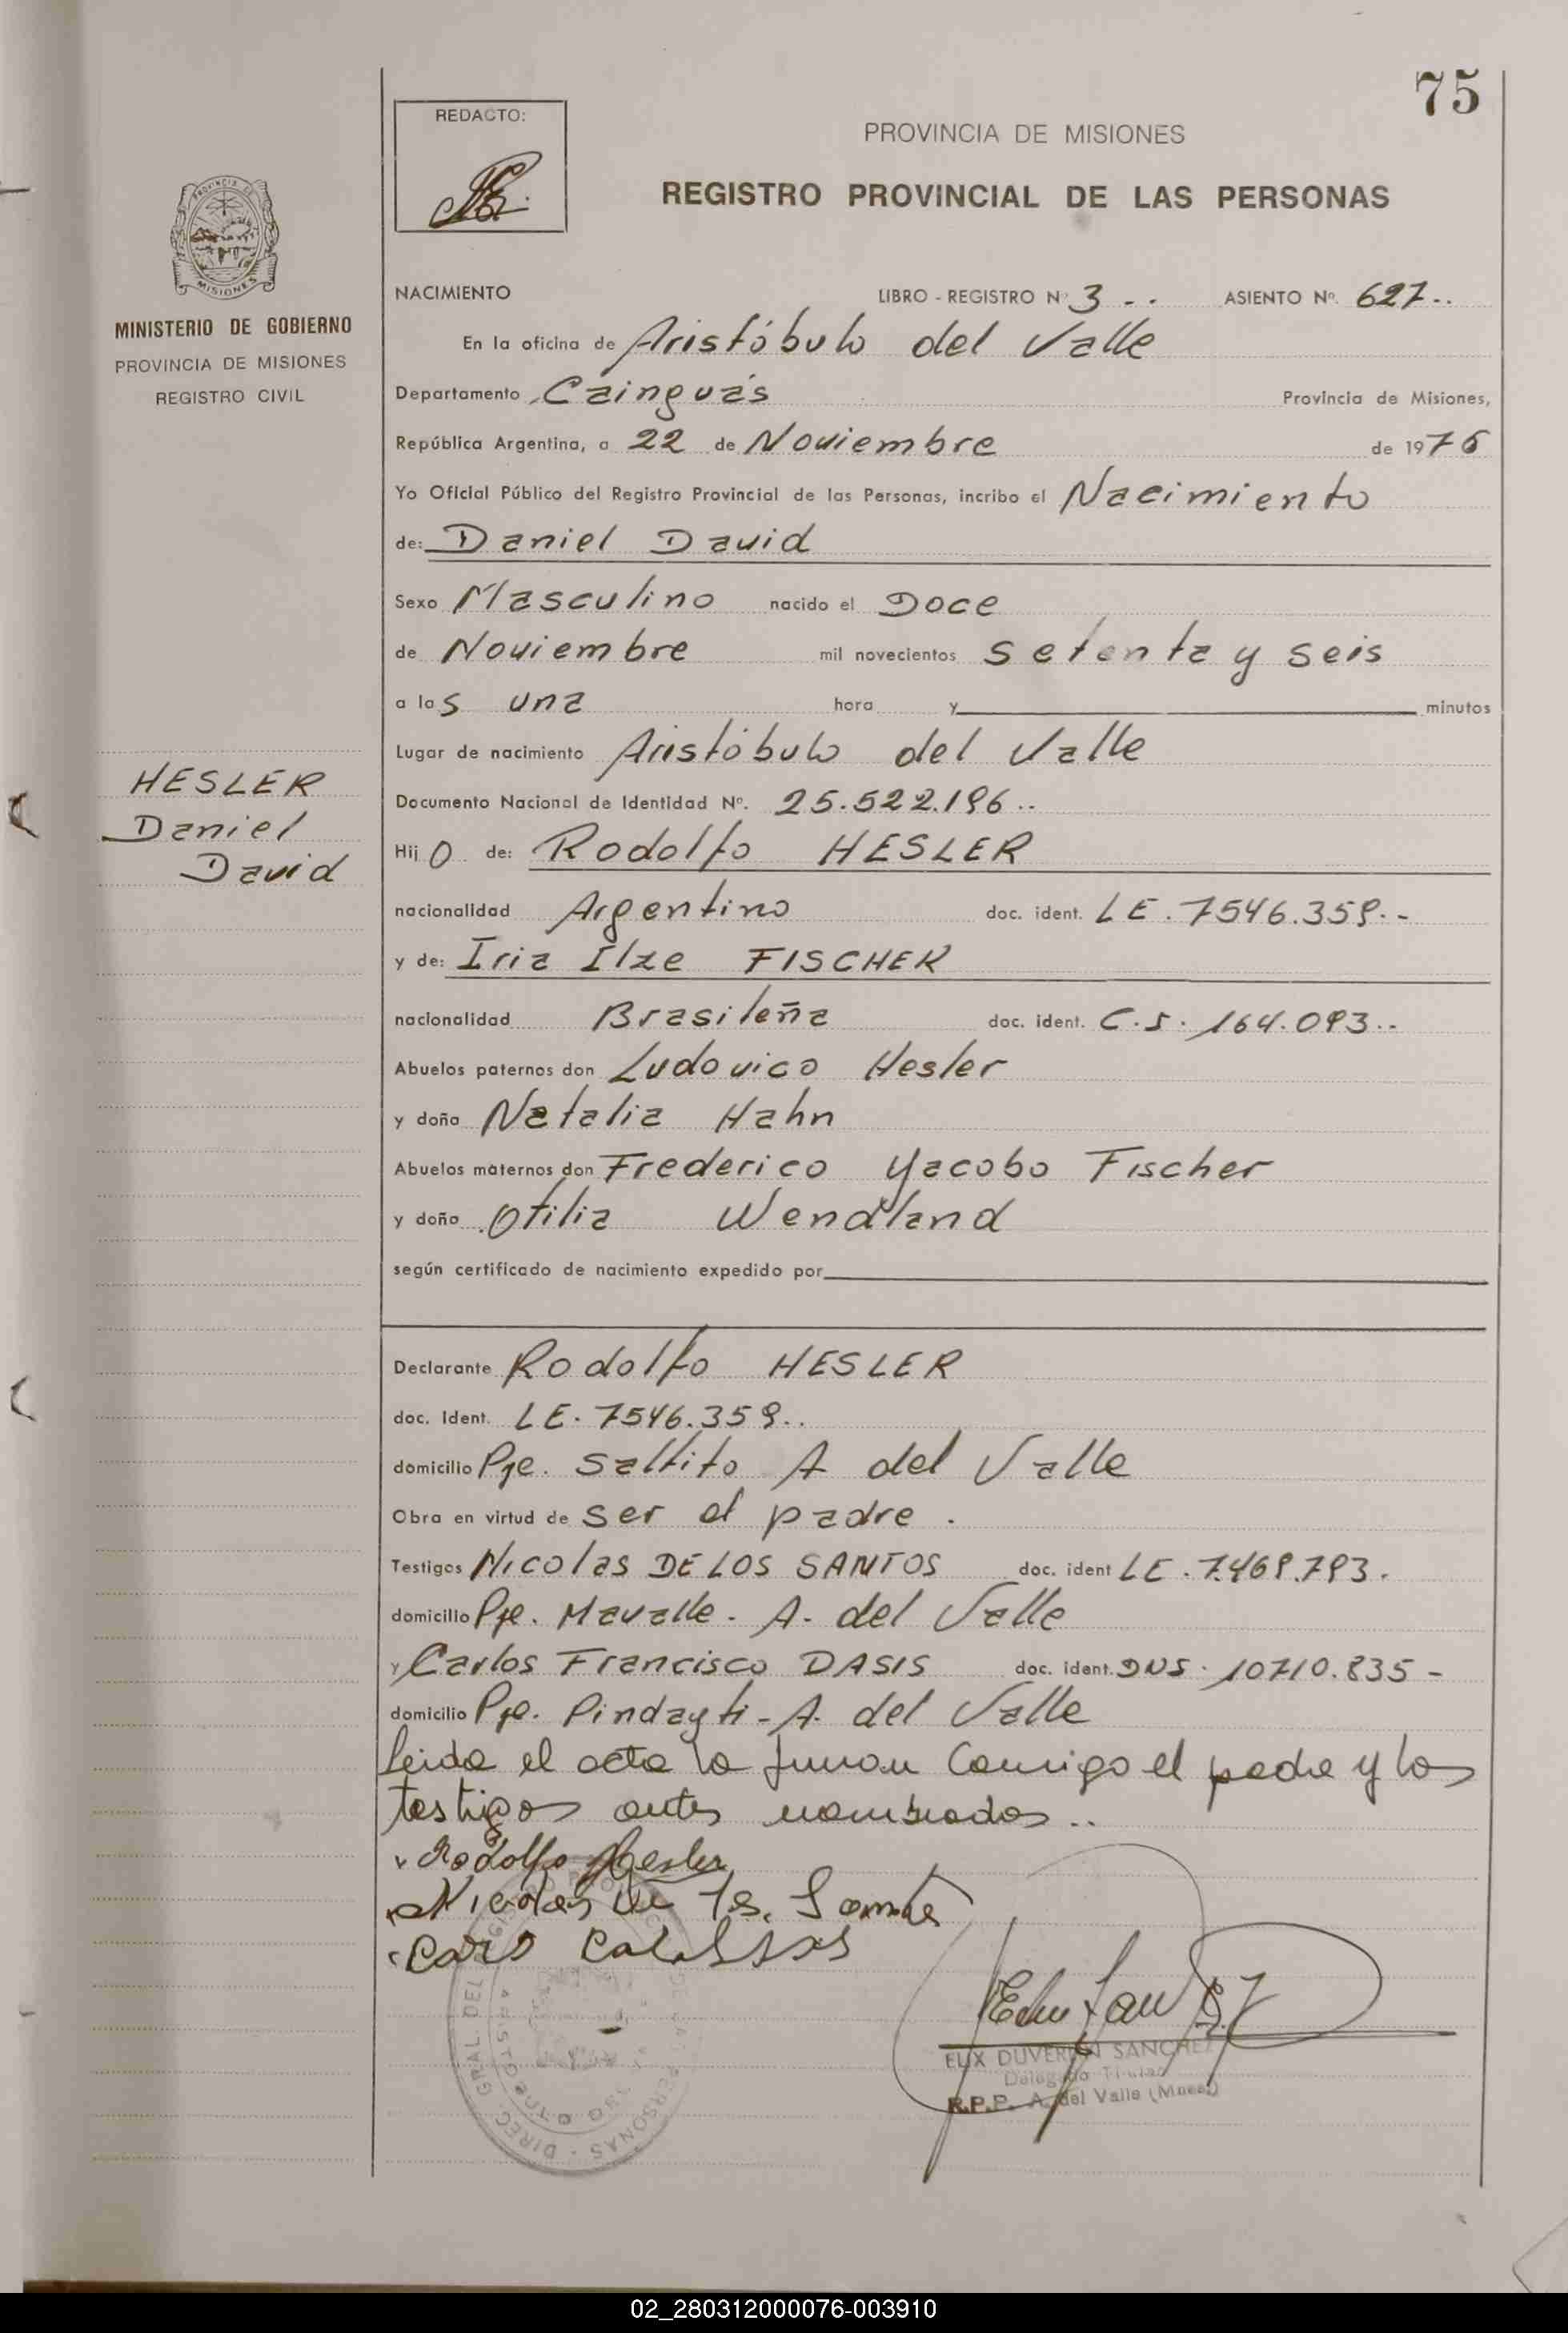 75
REDACTO:
PROVINCIA DE MISIONES
REGISTRO PROVINCIAL DE LAS PERSONAS
MISIONES
MINISTERIO DE GOBIERNO
PROVINCIA DE MISIONES
REGISTRO CIVIL
NACIMIENTO LIBRO - REGISTRO Nº 3 - - ASIENTO Nº. 627..
En la oficina de Aristóbulo del Valle
Departamento Cainguás Provincia de Misiones,
República Argentina, a 22 de Noviembre de 1976
Yo Oficial Público del Registro Provincial de las Personas, incribo el Nacimiento
de: Daniel David
Sexo Masculino nacido el Doce
de Noviembre mil novecientos setenta y seis
a las una hora y minutos
Lugar de nacimiento Aristóbulo del Valle
HESLER
Daniel
David
Documento Nacional de Identidad Nº. 25.522.196..
Hijo de: Rodolfo HESLER
nacionalidad Argentino doc. ident. LE. 7546.359.-
y de: Iria Ilze FISCHER
nacionalidad Brasileña doc. ident. C.I. 164.093..
Abuelos paternos don Ludovico Hesler
y doña Natalia Hahn
Abuelos maternos don Frederico Yacobo Fischer
y doña Otilia Wendland
según certificado de nacimiento expedido por
Declarante Rodolfo HESLER
doc. Ident. LE. 7546.359..
domicilio Pje. Saltito A del Valle
Obra en virtud de ser el padre.
Testigos Nicolas DE LOS SANTOS doc. ident LE. 7.469.793.
domicilio Pje. Mavalle. A. del Valle
y Carlos Francisco DASIS doc. ident. DNI. 10710.835-
domicilio Pje. Pindayti-A. del Valle
Leida el acta la firman conmigo el padre y los
testigos antes nombrados..
Rodolfo Hesler
Nicolas de los Santos
SANCHEZ
Delegado Titular
R.P.P. A. del Valle (Mnes.)
02_280312000076-003910